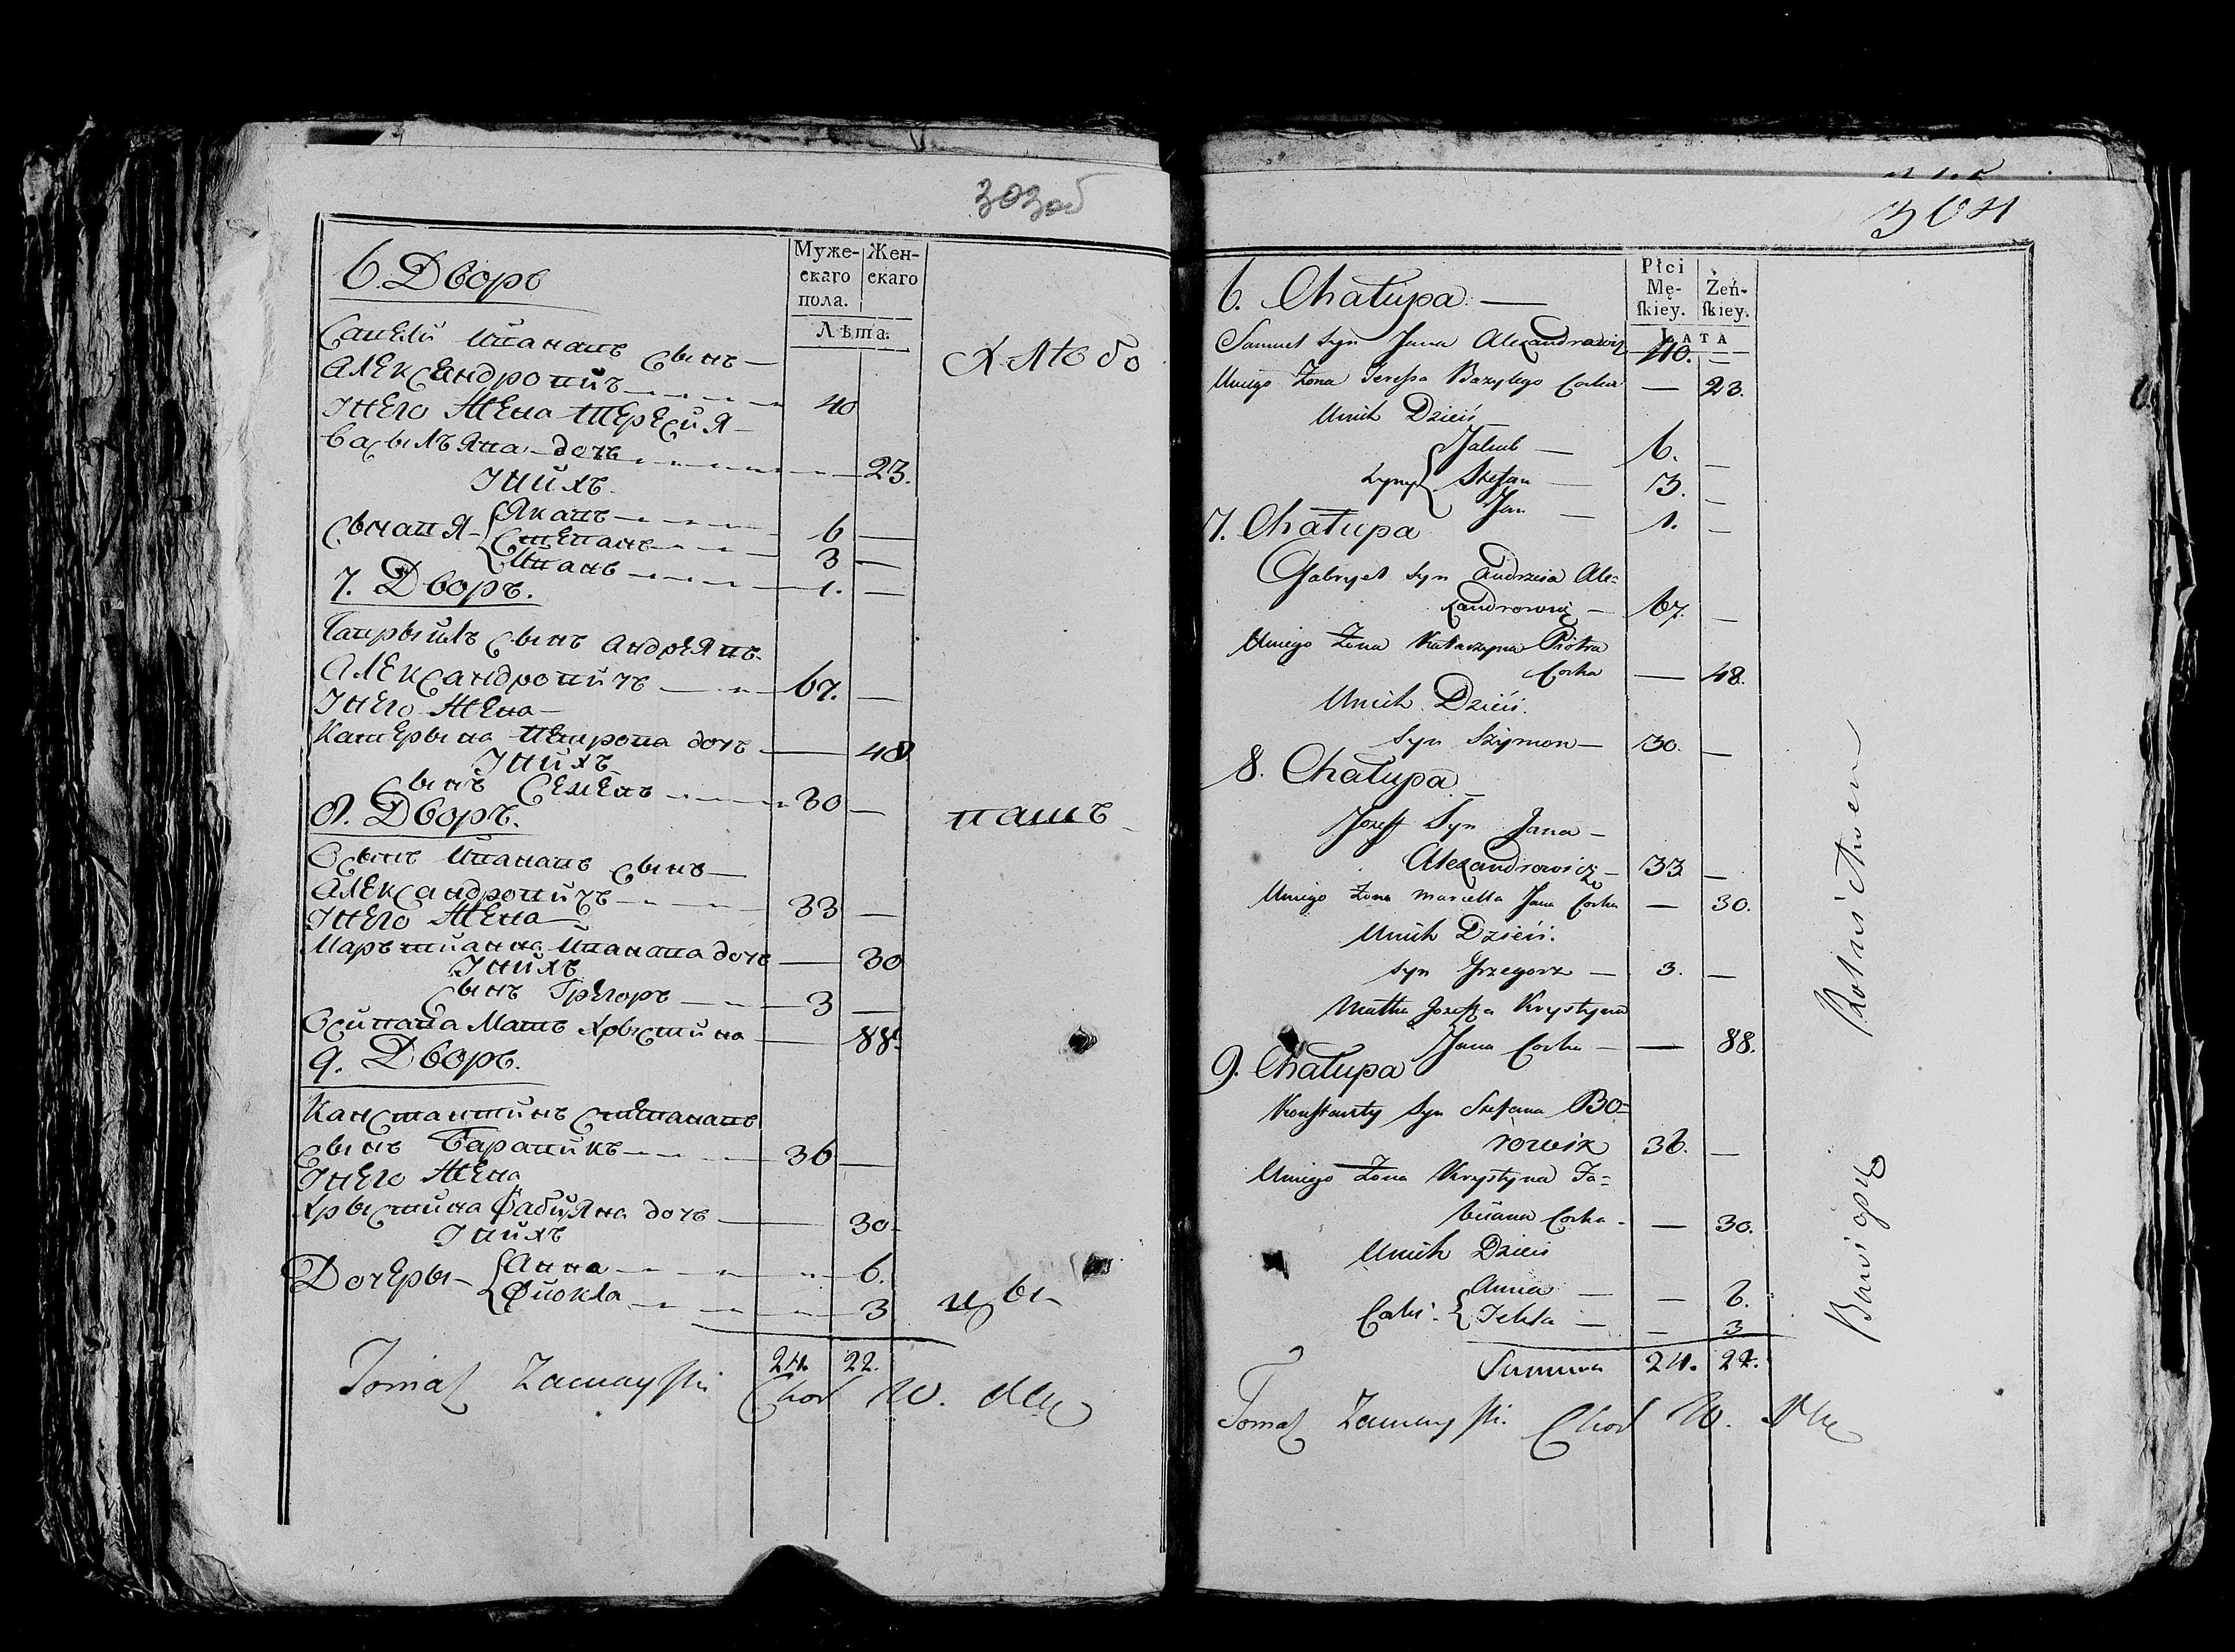 303об
6. Дворъ
Муже- Жен-
скаго скаго
пола.
Лѣта.
Самєлй Иванавъ Сынъ —
Алєксандровичъ 40
У нєго Жєна Тєрєсия —
Васыльява дочъ 23.
У нихъ
Якавъ 6 —
Сынавя Стєпанъ 3 —
Иванъ 1. —
7. Дворъ.
Гаврыилъ Сынъ Андрєявъ
Алєксандровичъ 67. —
У нєго Жєна —
Катєрына Пєтрова дочъ — 48
У нихъ
Сынъ Сємєнъ 30 —
8. Дворъ.
Осипъ Иванавъ Сынъ —
Алєксандровичъ 33 —
У нєго Жєна —
Маръцианна Иванава дочъ — 30
У нихъ
Сынъ Грєгоръ 3 —
Осипава Мать Хрыстина — 88.
9. Дворъ.
Канстантинъ Стєпанавъ
Сынъ Баравикъ 36 —
У нєго Жєна
Хрыстина Фабияна дочъ — 30
У нихъ
Анна 6.
Дочєры Фиокла 3
24. 22.
Tomasz Zamayski Chor W.
Хлѣбо
паш
цы
304
6. Chałupa —
Płci
Mę- Żeń-
ſkiey. ſkiey.
LATA
Samuel Syn Jana Alexandrowicz 40. —
U niego Żona Teressa Bazylego Corka — 23.
U nich Dzieci
Jakub — 6. —
Syny Stefan — 3. —
Jan — 1. —
7. Chałupa
Gabryel Syn Andrzeia Ale=
xandrowicz — 67. —
U niego Żona Katarzyna Piotra
Corka — 48.
U nich Dzieci.
Syn Szymon — 30. —
8. Chałupa
Jozeff Syn Jana —
Alexandrowicz — 33 —
U niego Żona Marcella Jana Corka — 30.
U nich Dzieci.
Syn Grzegorz — 3. —
Matka Jozeffa Krystyna
Jana Corka — 88.
9. Chałupa
Konstanty Syn Stefana Bo=
rowik 36. —
U niego Żona Krystyna Fa=
biiana Corka — 30.
U nich Dzieci
Anna — — 6.
Corki Tekla — — 3
Summa 24. 22.
Tomasz Zamayski. Chor W.
Bawi się Rolnictwem